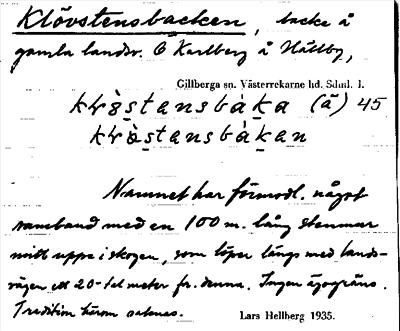 Klövstensbacken, backe å
gamla landsv. Ö Karlberg å Hällby,
Gillberga sn. Västerrekarne hd. Sdml. l.
krø̀stansbàka (ä) 45
krø̀stansbàkan
Namnet har förmodl. något
samband med en 100 m. lång stenmur
mitt uppe i skogen, som löper längs med lands-
vägen ett 20-tal meter fr. denna. Ingen ägogräns.
Tradition härom saknas.
Lars Hellberg 1935.